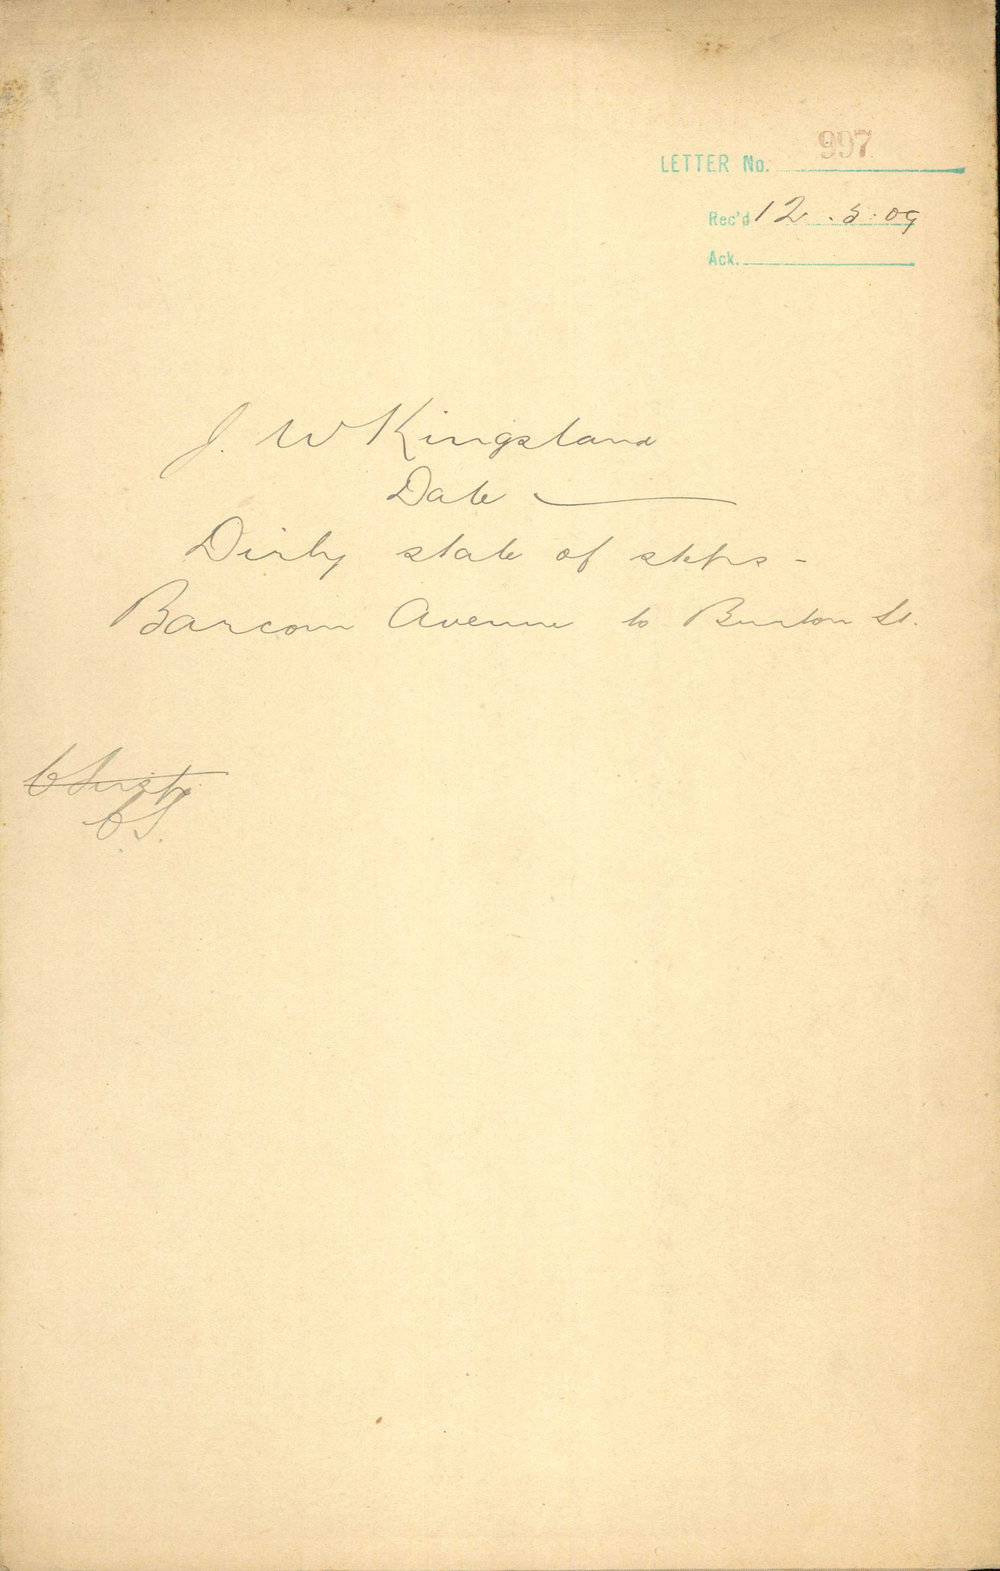 LETTER No. 997
Rec'd 12.5.09
Ack.
J. W Kingsland
Date
Dirty state of steps -
Barcom Avenue to Burton St.
C.S.